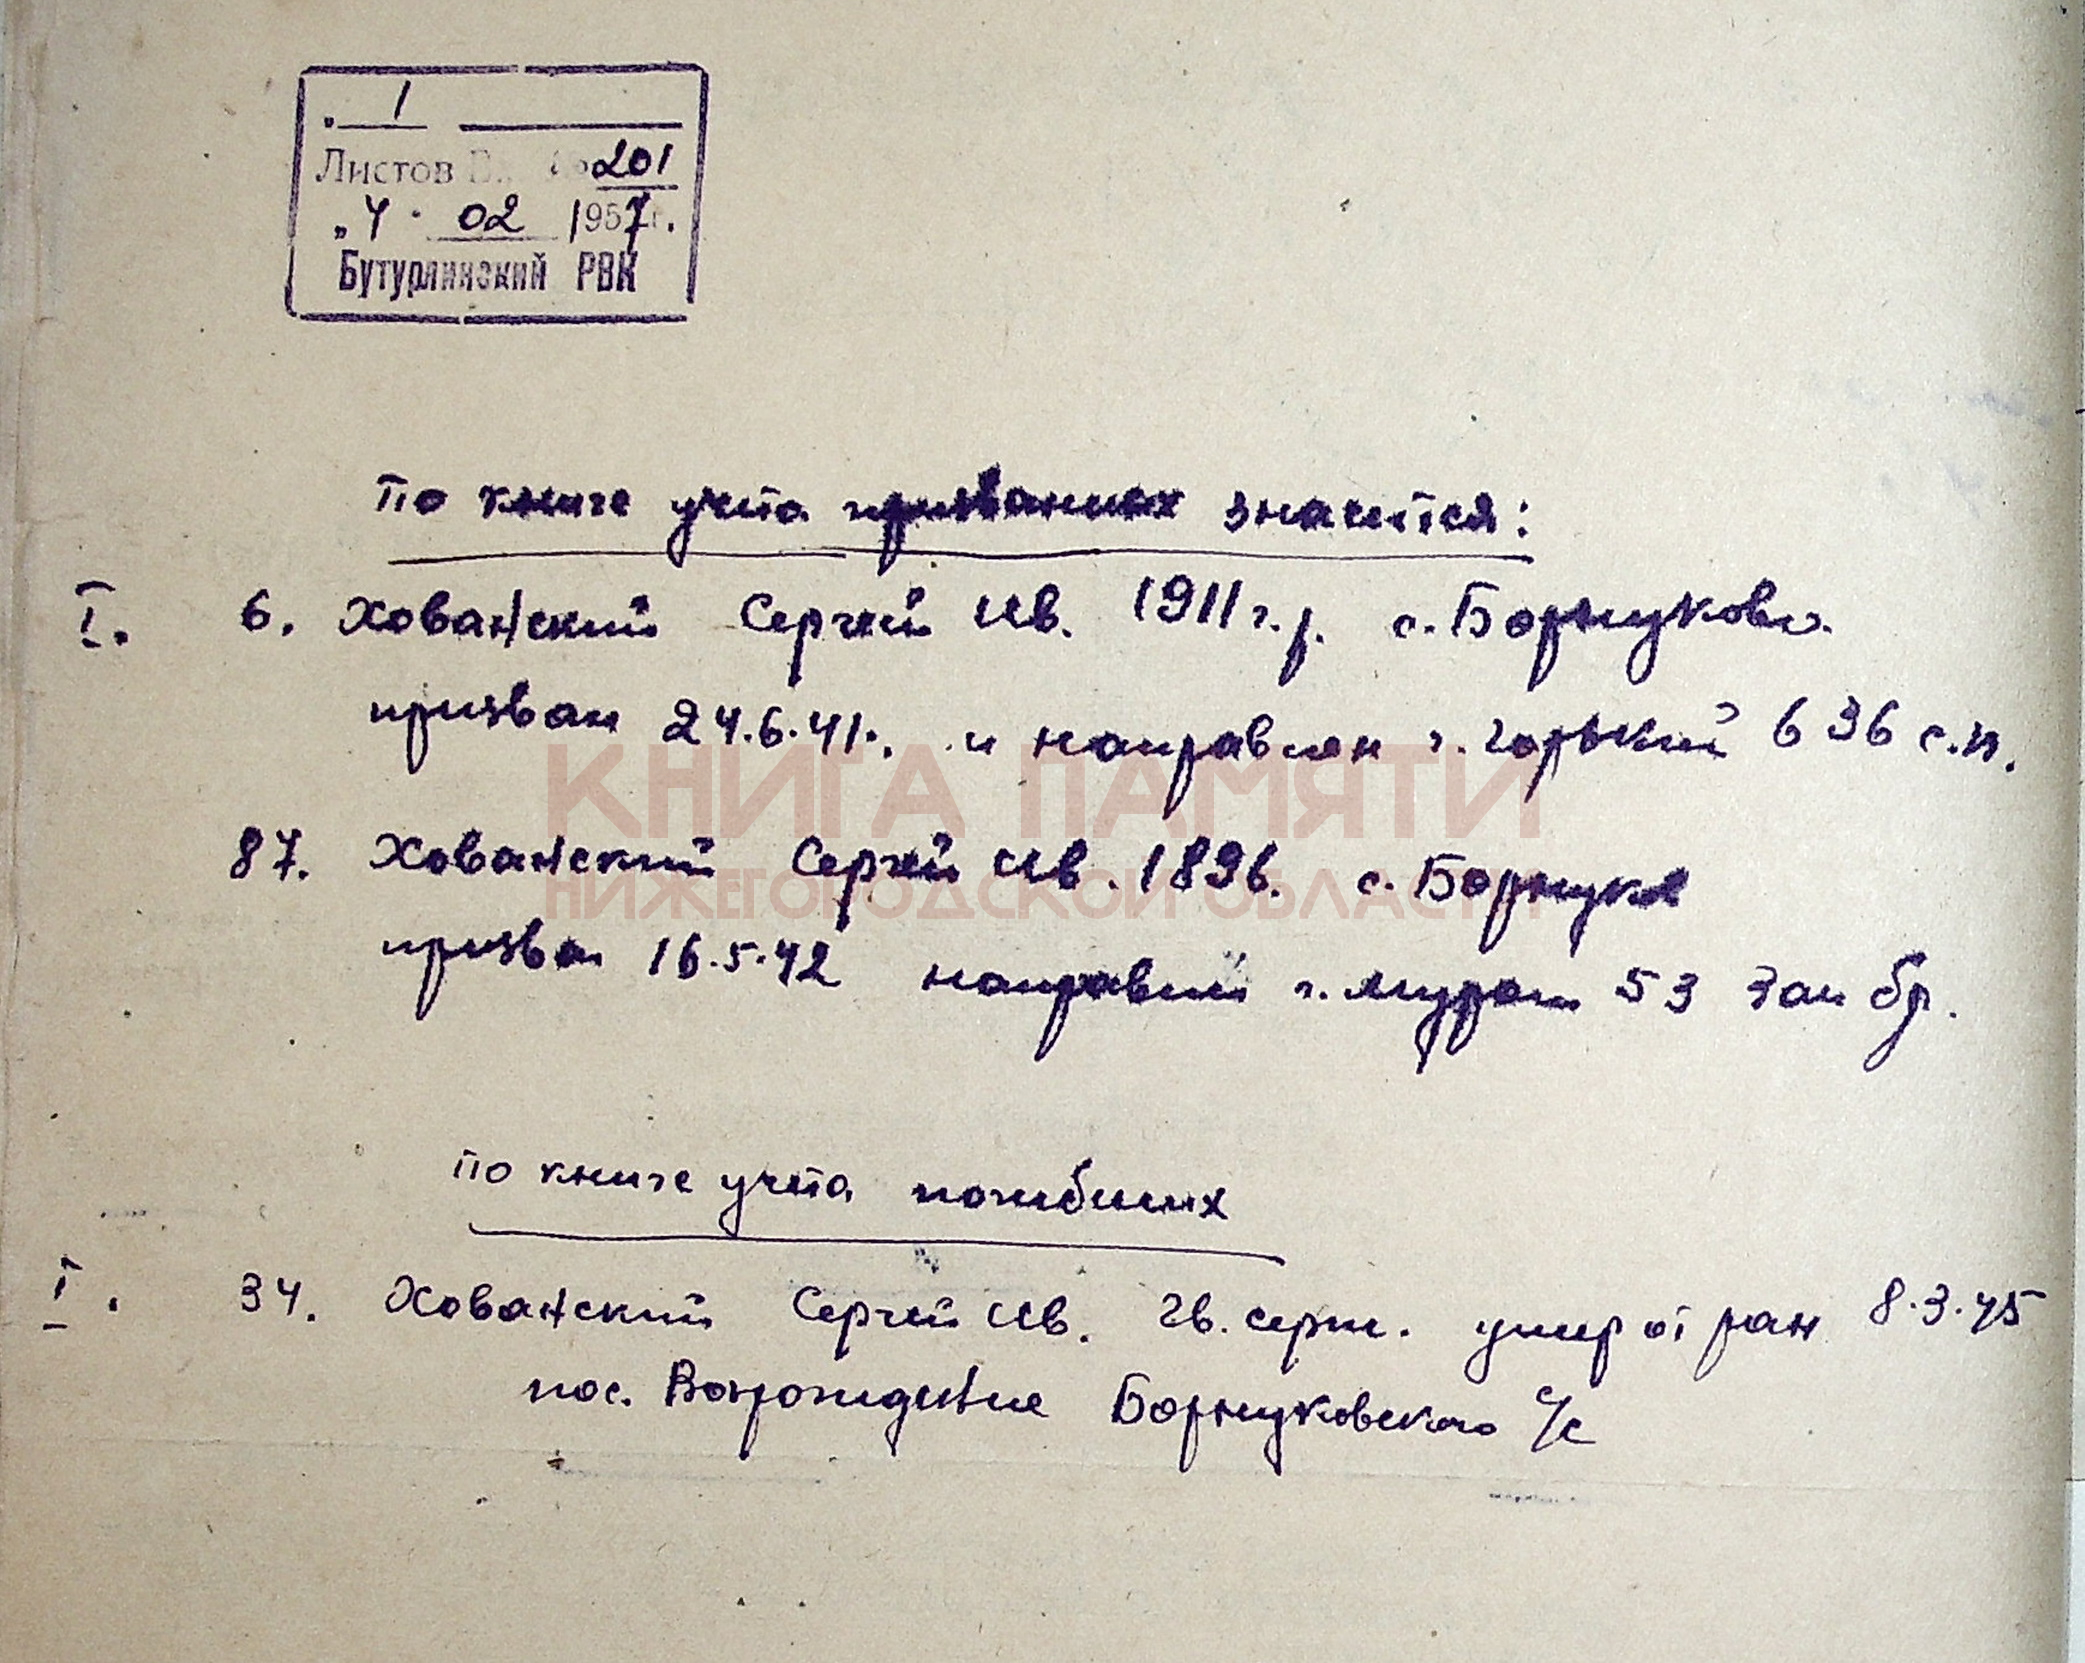 „ 1
Листов Вх. № 201
„4“ 02 1957г.
Бутурлинский РВК
По книге учета призванных значится:
I. 6. Хованский Сергей Ив. 1911г.р. с. Борнуково.
призван 24.6.41г. и направлен г. Горький 636 с.п.
87. Хованский Сергей Ив. 1896. с. Борнуково
призван 16.5.42 направлен г. Муром 53 Зап бр.
По книге учета погибших
I. 34. Хованский Сергей Ив. Гв. серж. умер от ран 8.3.45
пос. Возрождение Борнуковского с/с
КНИГА ПАМЯТИ
НИЖЕГОРОДСКОЙ ОБЛАСТИ